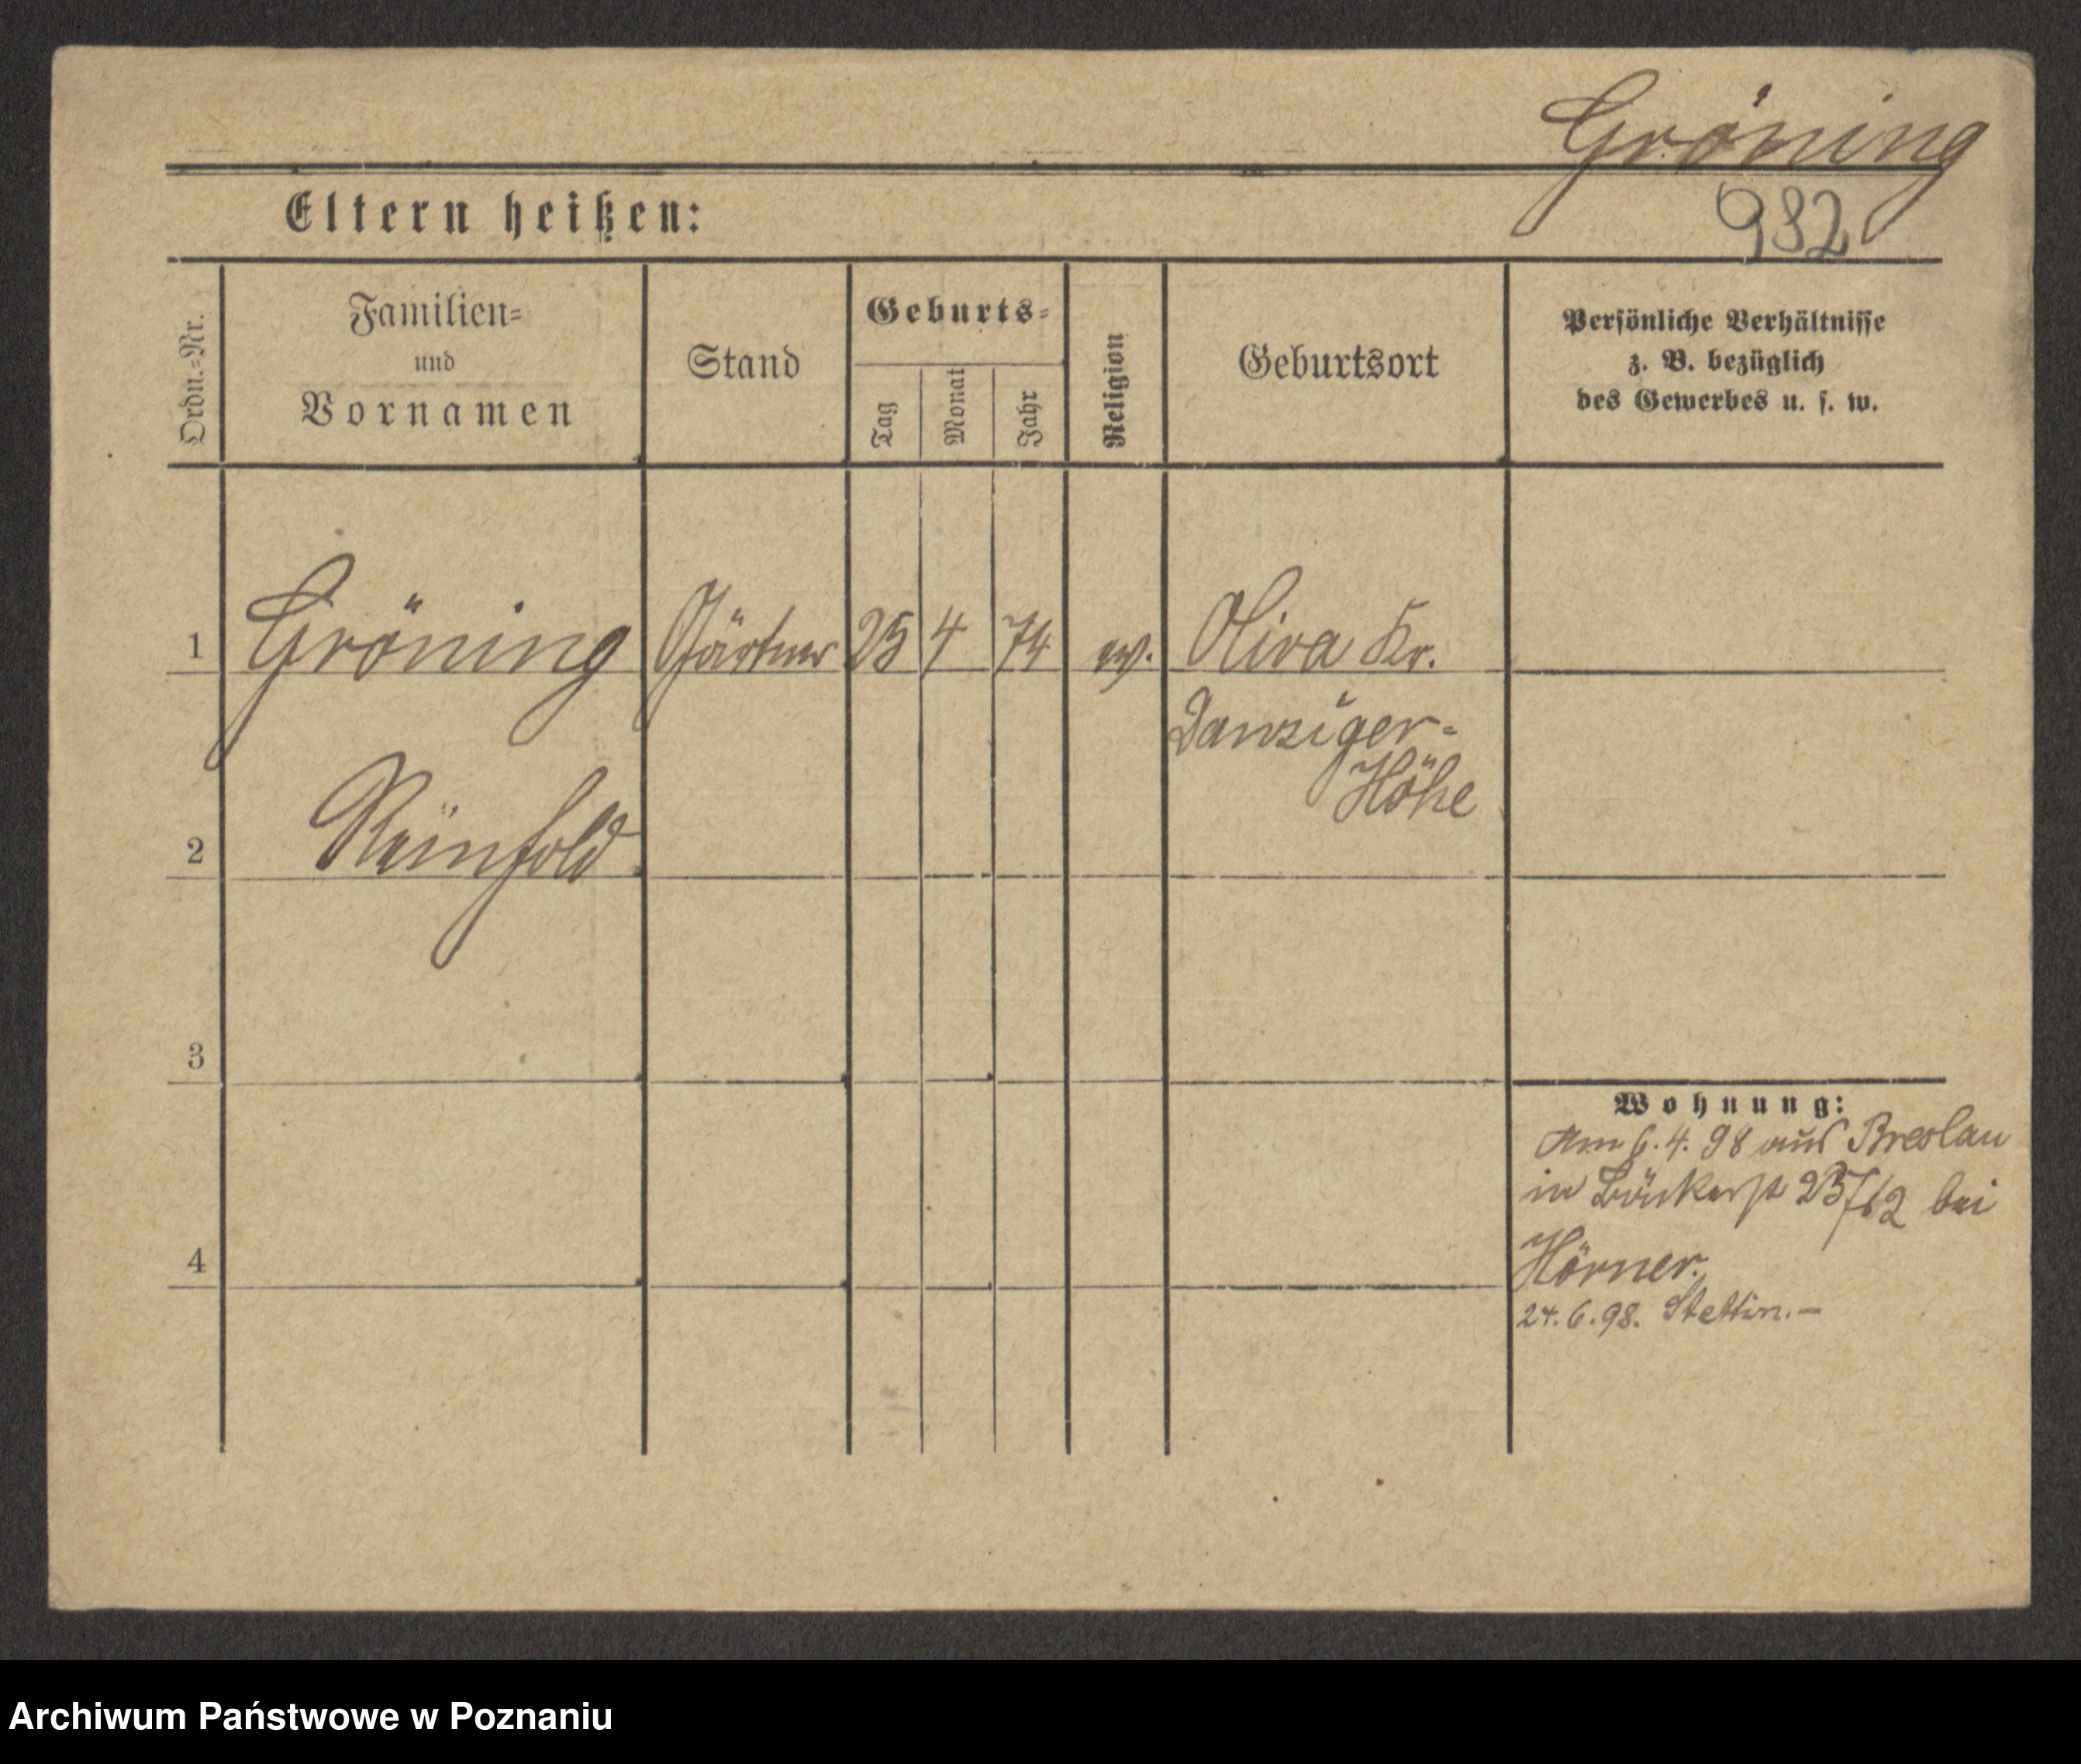 Gröning
982
Eltern heißen:
Ordn.=Nr.
Familien=
und
Vornamen
Stand
Geburts=
Tag
Monat
Jahr
Religion
Geburtsort
Persönliche Verhältnisse
z. B. bezüglich
des Gewerbes u. s. w.
1 Gröning Gärtner 25 4 74 ev. Oliva Kr.
Danziger=
Höhe
2 Reinhold
3
4
Wohnung:
Am 6. 4. 98 aus Breslau
in 23/12 bei
Hörner.
24. 6. 98. Stettin. –
Archiwum Państwowe w Poznaniu